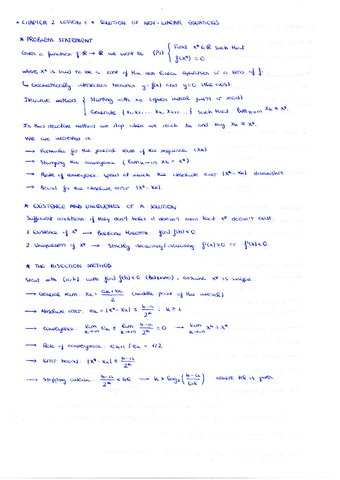 * CHAPTER 2 LESSON 1 * SOLUTION OF NON-LINEAR EQUATIONS
* PROBLEM STATEMENT
Given a function f: ℝ → ℝ we want to (P1) { Find x* ∈ ℝ such that
f(x*) = 0
where x* is said to be a root of the non linear equation or a zero of f.
↳ Geometrically intersection between y = f(x) and y = 0 (the axis).
Iterative method { Starting with x0 (given initial guess or seed)
Generate {x1, x2, ... xk, xk+1, ...} such that lim k→∞ xk = x*.
In this iterative method we stop when reach xk and say xk ≈ x*.
We are interested in:
→ Formulas for the general term of the sequence (xk)
→ Studying the convergence (lim k→∞ xk = x*).
→ Rate of convergence: speed at which the absolute error |x* - xk| diminishes.
→ Bound for the absolute error |x* - xk|.
* EXISTENCE AND UNIQUENESS OF A SOLUTION
Sufficient conditions if they don't hold it doesn't mean that x* doesn't exist.
1. Existence of x* → Bolzano theorem: f(a) f(b) < 0
2. Uniqueness of x* → Strictly decreasing/increasing f'(x) > 0 or f'(x) < 0.
* THE BISECTION METHOD
Start with [a,b] with f(a) f(b) < 0 (Bolzano), assume x* is unique.
→ General term: xk = (ak + bk)/2 (middle point of the interval)
→ Absolute error: ek = |x* - xk| ≤ (b-a)/2^k ; k ≥ 1
→ Convergence: lim k→∞ ek ≤ lim k→∞ (b-a)/2^k = 0 → lim k→∞ xk = x*
→ Rate of convergence: ek+1 / ek ≈ 1/2
→ Error bound: |x* - xk| ≤ (b-a)/2^k
→ Stopping criteria: (b-a)/2^k < → k > log2 where is given